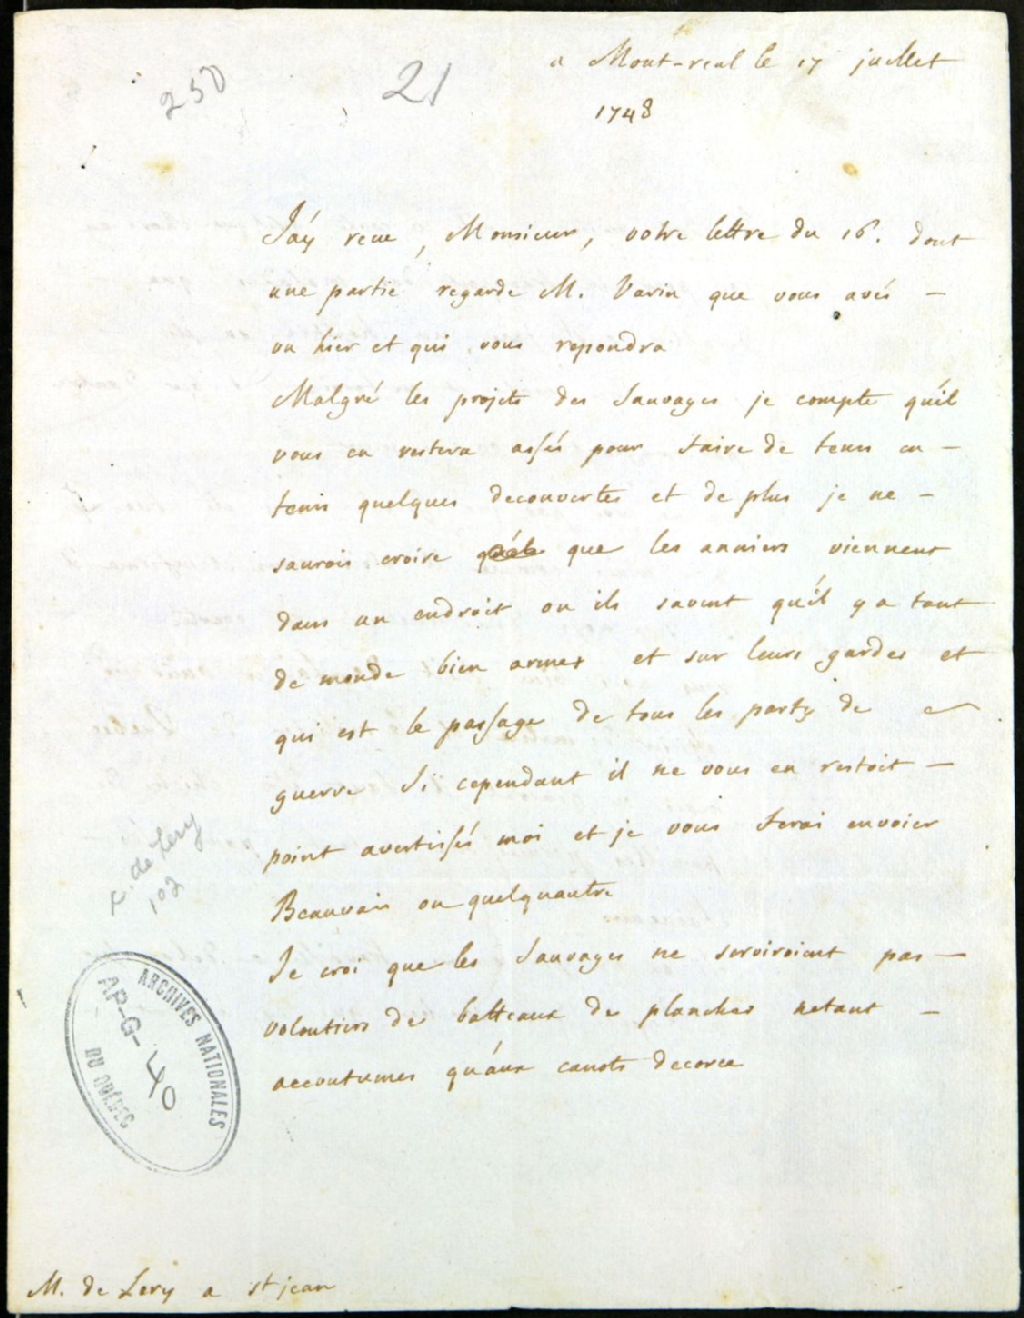 250
21
a Mont-real le 17 juillet
1748
J'ay reçue, Monsieur, votre lettre du 16. dont
une partie regarde M. Varin que vous avés –
vu hier et qui vous repondra
Malgré les projets des Sauvages je compte qu'il
vous en restera assés pour faire de tems en –
tems quelques decouvertes et de plus je ne –
saurois croire que les anniers viennent
dans un endroit ou ils savent qu'il y a tant
de monde bien armes et sur leurs gardes et
qui est le passage de tous les party de
guerre Si cependant il ne vous en restoit –
point avertissés moi et je vous ferai envoier
Beauvais ou quelqu'autre
Je croi que les Sauvages ne serviroient pas –
volontiers de batteaux de planches netant –
accoutumes qu'aux canots decorce
F. de Lery
102
ARCHIVES NATIONALES
AP-G-40
DU QUÉBEC
M. de Lery a st jean